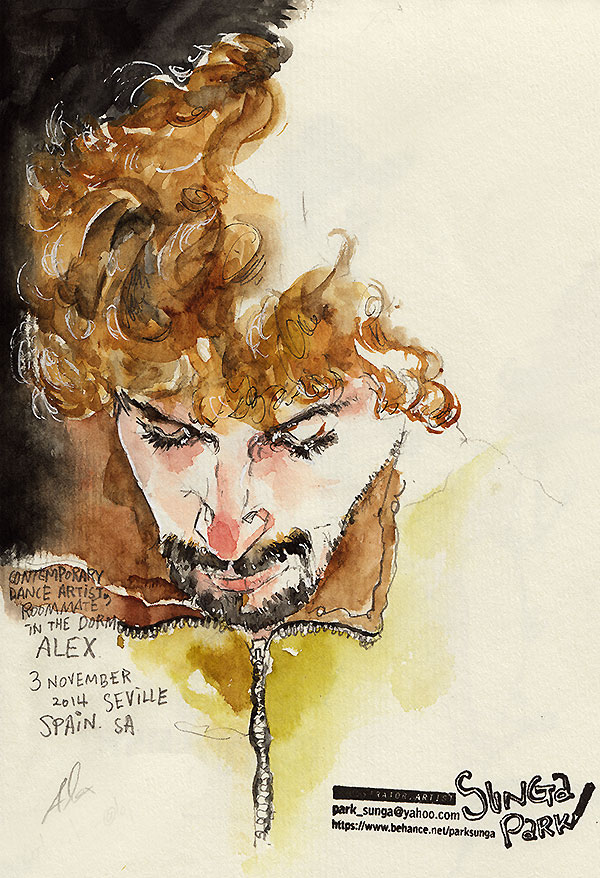 CONTEMPORARY
DANCE ARTIST,
"ROOMMATE"
IN THE DORM
ALEX.
3 NOVEMBER
2014 SEVILLE
SPAIN. SA
Alex
ARTIST
SUNGA
PARK!
park_sunga@yahoo.com
https://www.behance.net/parksunga